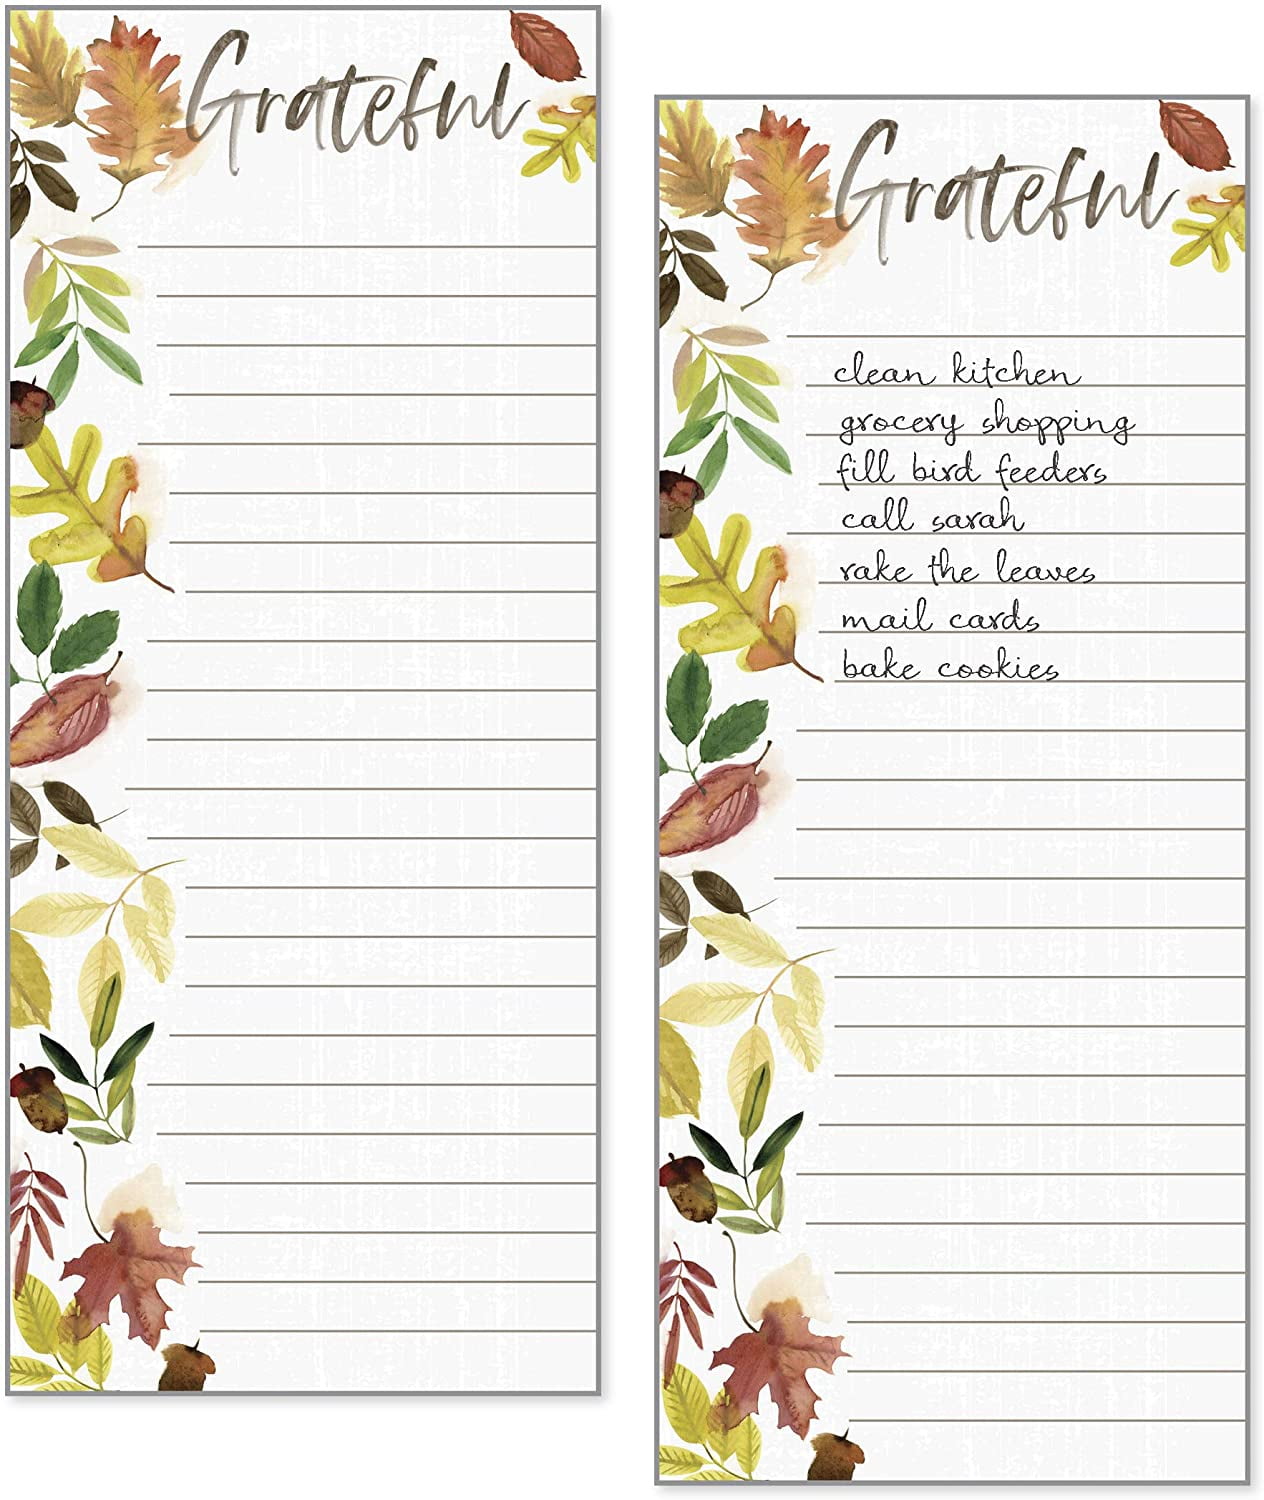 Grateful
Grateful
clean kitchen
grocery shopping
fill bird feeders
call sarah
rake the leaves
mail cards
bake cookies